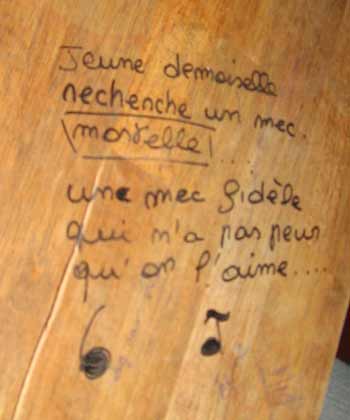 Jeune demoiselle
recherche un mec.
(mortelle)....
une mec fidèle
qui n'a pas peur
qu'on l'aime....